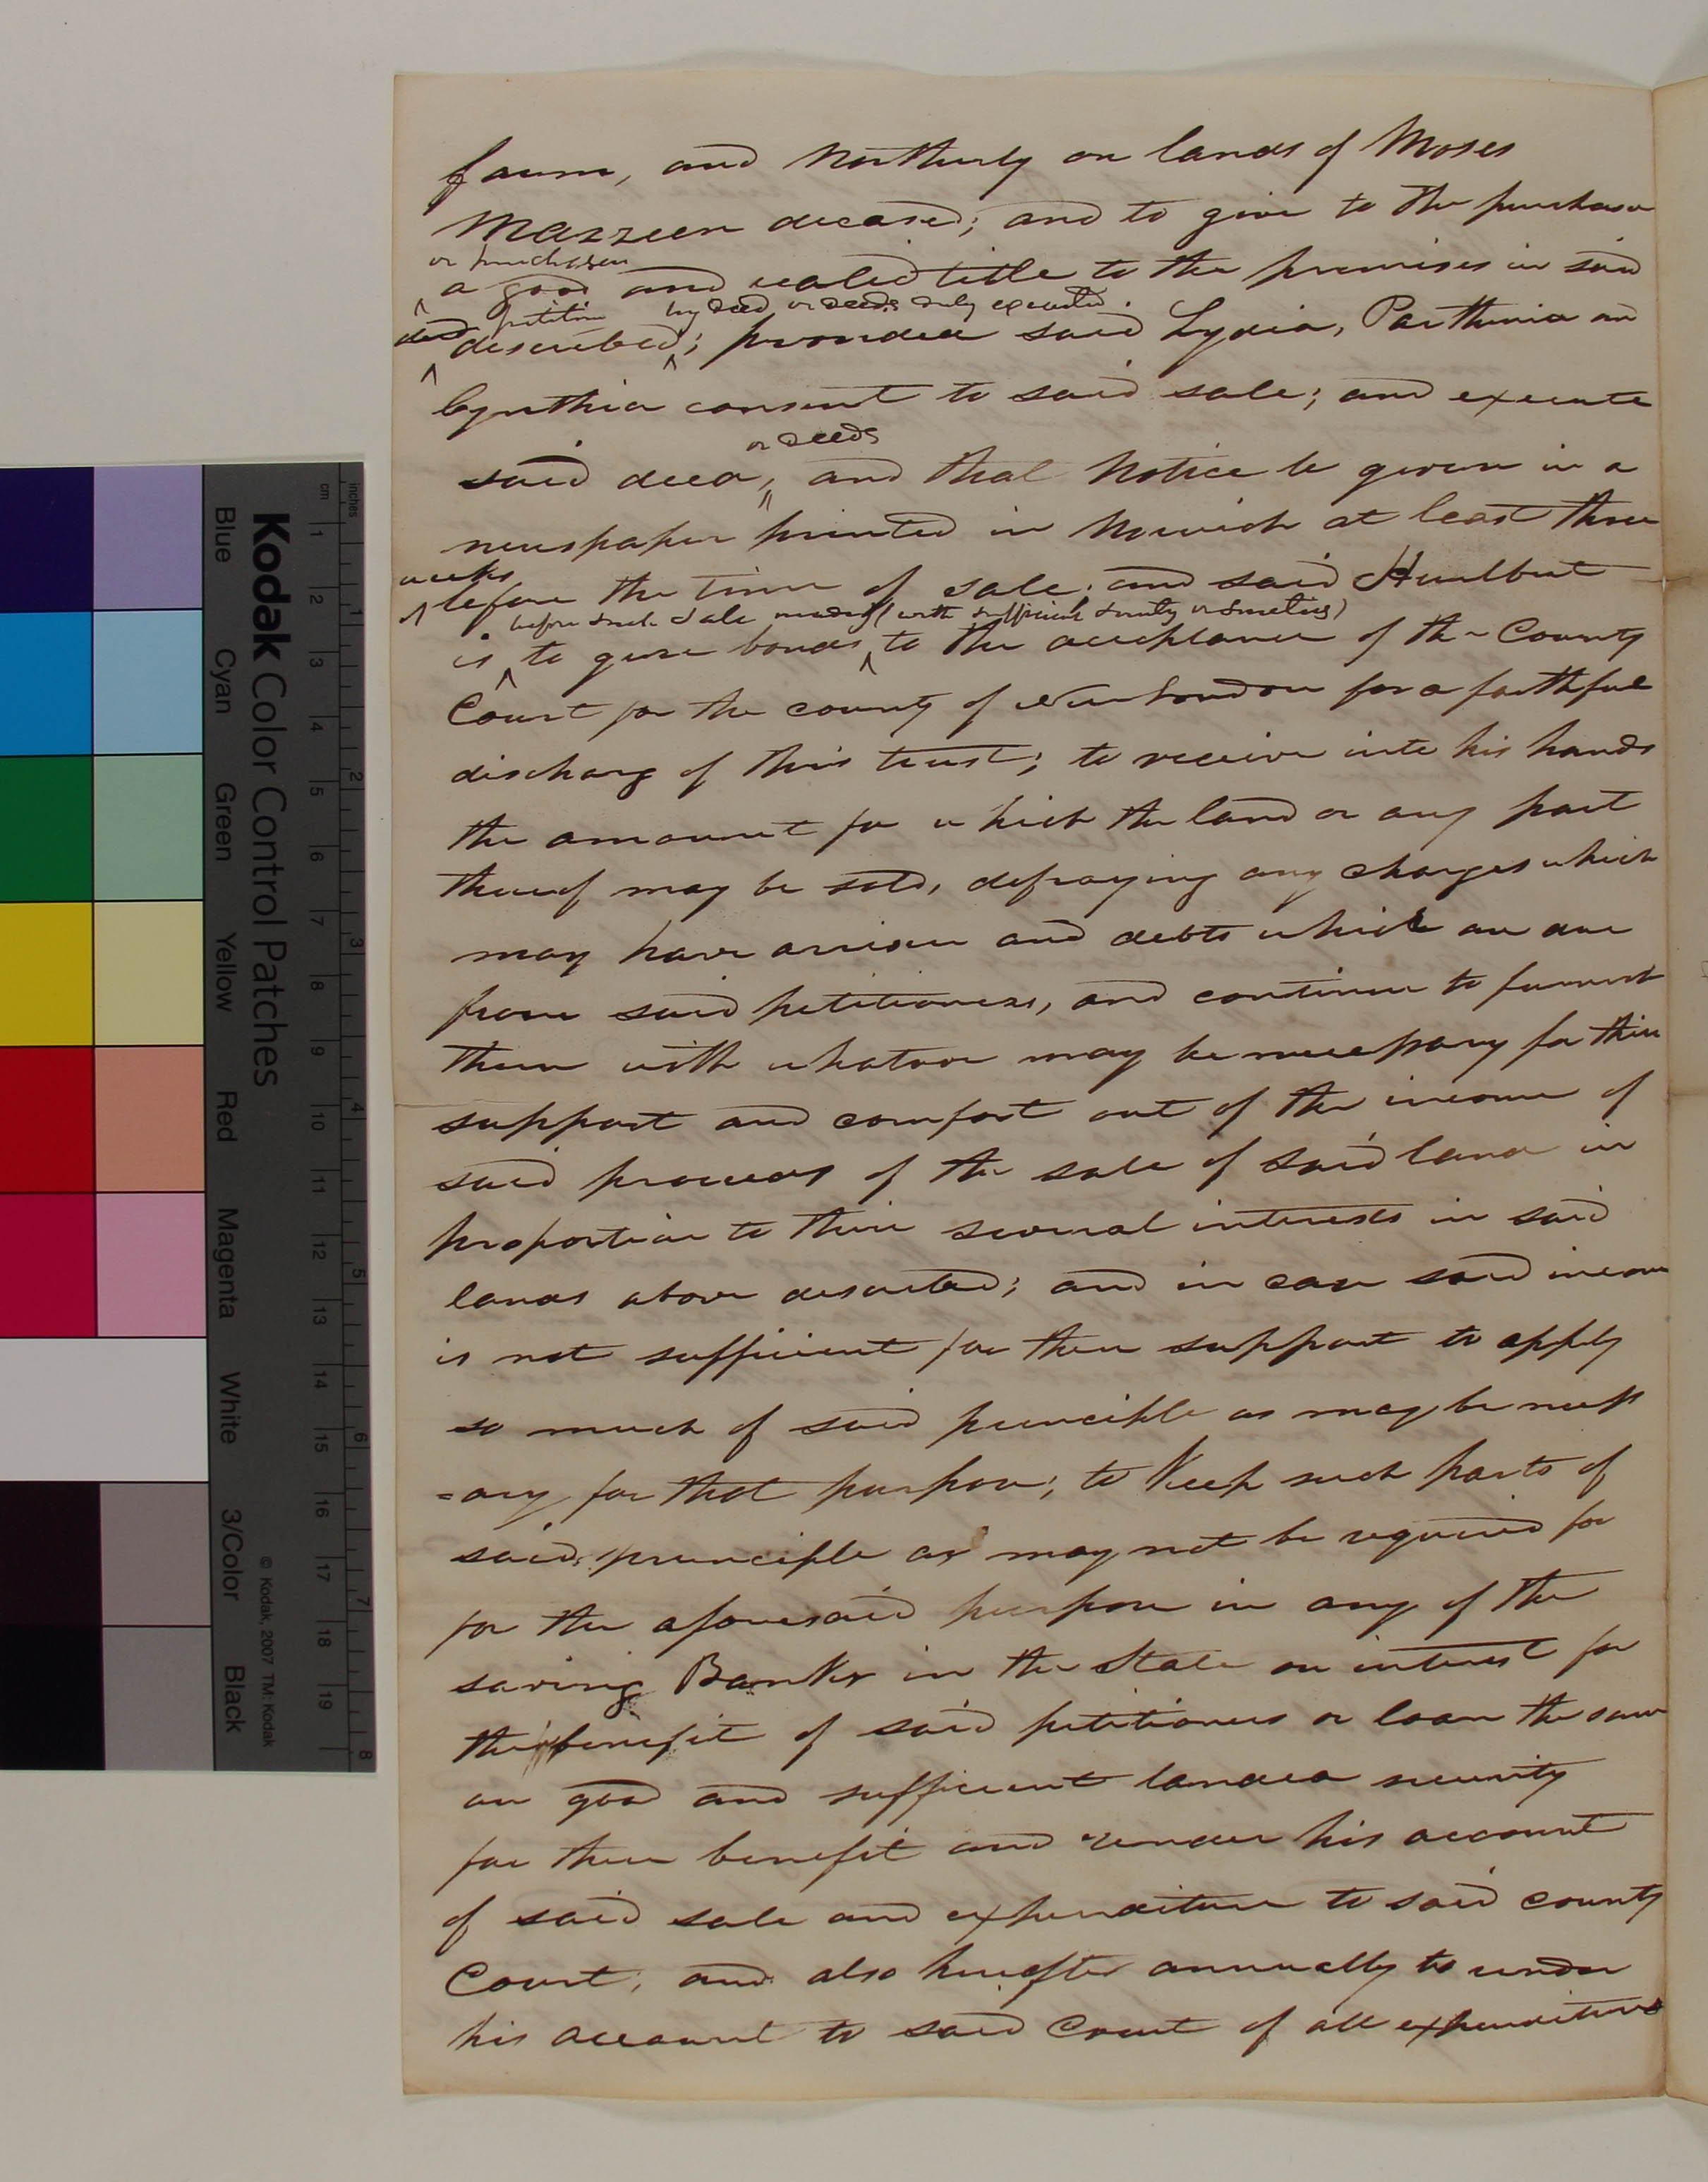 farm, and Northerly on lands of Moses
Mazzeen deceased; and to give to the purchaser
or purchasers
a good and valid title to the premises in said
petition by deed or deeds duly executed
described; provided said Lydia, Parthenia and
Cynthia consent to said sale; and execute
or deeds
said deed, and that Notice be given in a
newspaper printed in Norwich at least three
weeks before the time of sale; and said Hurlbut
before such sale made (with sufficient surety or sureties)
is to give bonds to the acceptance of the County
Court for the county of New London for a faithful
discharg of this trust; to receive into his hands
the amount for which the land or any part
thereof may be sold, defraying any charges which
may have arrisen and debts which are due
from said petitioners, and continue to furnish
them with whatever may be necessary for their
support and comfort out of the income of
said proceeds of the sale of said land in
proportion to their several interests in said
lands above described; and in case said income
is not sufficient for their support to apply
so much of said principle as may be necess
=ary for that purpose; to Keep such parts of
said principle as may not be required for
for the aforesaid purpose in any of the
saving Banks in the State on interest for
the benefit of said petitioners or loan the same
on good and sufficient landed security
for their benefit and render his account
of said sale and expenditure to said county
Court, and also hereafter annually to render
his account to said Court of all expenditures
Kodak Color Control Patches
Blue Cyan Green Yellow Red Magenta White 3/Color Black
© Kodak, 2007 TM: Kodak
inches 1 2 3 4 5 6 7 8
cm 1 2 3 4 5 6 7 8 9 10 11 12 13 14 15 16 17 18 19